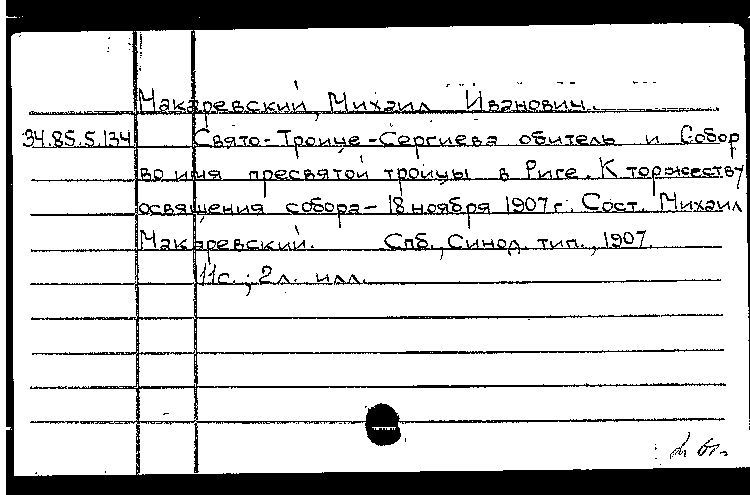 Макаревский, Михаил Иванович.
34.85.5.134 Свято-Троице-Сергиева обитель и Собор
во имя пресвятой троицы в Риге. К торжеству
освящения собора - 18 ноября 1907 г. Сост. Михаил
Макаревский. Спб., Синод. тип., 1907.
11с.; 2л. илл.